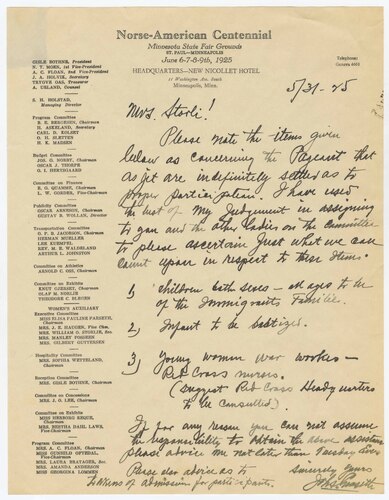 Norse-American Centennial
Minnesota State Fair Grounds
ST. PAUL—MINNEAPOLIS
June 6-7-8-9th, 1925
HEADQUARTERS—NEW NICOLLET HOTEL
Washington Ave. South
Minneapolis, Minn.
Telephone:
GISLE BOTHNE, President
N. T. MOEN, 1st Vice-President
A. C. FLOAN, 2nd Vice-President
J. A. HOLVIK, Secretary
TRYGVE OAS, Treasurer
A. UELAND, Counsel
S. H. HOLSTAD,
Managing Director
Program Committee
B. E. BERGESEN, Chairman
H. ASKELAND, Secretary
CARL D. KOLSET
O. H. SLETTEN
S. H. MADSEN
Budget Committee
JOS. G. NORBY, Chairman
OSCAR J. THORPE
G. I. HERVIGAARD
Committee on Finance
E. G. QUAMME, Chairman
L. W. GORDER, Vice-Chairman
Publicity Committee
OSCAR ARNESON, Chairman
GUSTAV B. WOLLAN, Director
Transportation Committee
P. E. JACOBSON, Chairman
HERMAN MUELLER
LEE KUEMPEL
REV. M. B. WALDELAND
ARTHUR L. JOHNSTON
Committee on Athletics
ARNOLD C. OSS, Chairman
Committee on Exhibits
KNUT GJERSET, Chairman
OLAF M. NORLIE
THEODORE C. BLEGEN
WOMEN'S AUXILIARY
Executive Committee
MISS ELISA PAULINE FARSETH,
Chairman
MRS. J. E. HAUGEN, Vice Chm.
MRS. WILLIAM O. STORLIE, Sec.
MRS. MANLEY FOSSEEN
MRS. GILBERT GUTTERSEN
Hospitality Committee
MRS. SOPHIA WETTELAND,
Chairman
Reception Committee
MRS. GISLE BOTHNE, Chairman
Committee on Concessions
MRS. J. O. LEE, Chairman
Committee on Exhibits
MISS HERBORG REQUE,
Chairman
MRS. BERTHA DAHL LAWS,
Vice-Chairman
Program Committee
MRS. A. C. FLOAN, Chairman
MRS. GUNHILD OFTEDAL,
Vice-Chairman
MRS. LAURA BRATAGER, Sec.
MRS. AMANDA ANDERSON
MISS GEORGINA LOMMEN
5/31-25
Mrs. Storli!
Please note the items given
below as concerning the Pageant that
as yet are indefinitely settled as to
proper participation. I have used
the best of my judgement in assigning
to you and the other ladies on the committee
to please ascertain just what we can
count upon in respect to these items.
1) Children both sexes – all ages to be
of the Immigrants Families.
2) Infant to be baptized.
3) Young women war workers –
Red Cross nurses.
(suggest Red Cross Headquarters
to be consulted)
If for any reason you can not assume
the responsibility to obtain the above assistants
please advise me not later than Tuesday
Please also advise as to
tokens of admission for participants.
Sincerely Yours